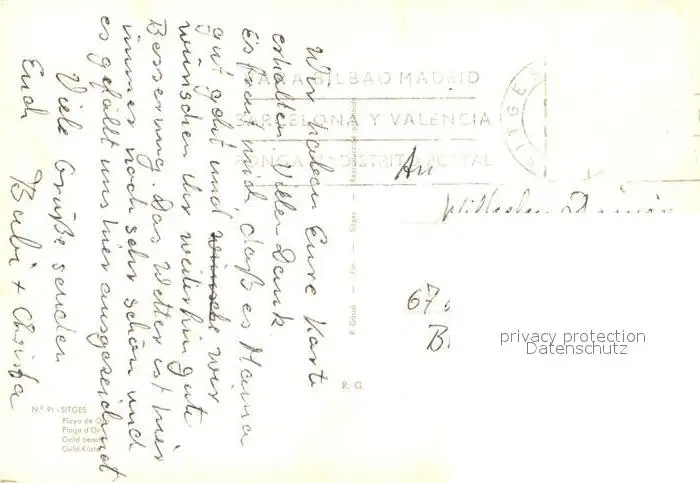 Wir haben Eure Karte
erhalten. Vielen Dank.
Es freut mich, daß es Mama
gut geht und wünsche wir
wünschen ihr weiterhin gute
Besserung. Das Wetter ist hier
immer noch sehr schön und
es gefällt uns hier ausgezeichnet
Viele Grüße senden
Euch Bubi + Christa
PARA BILBAO MADRID
BARCELONA Y VALENCIA
PONGA DISTRITO POSTAL
SITGES
An
Wilhelm
67
B
R. G.
N.º 91 - SITGES
Playa de O
Plage d'Or
Gold beach
Gold Küste
privacy protection
Datenschutz